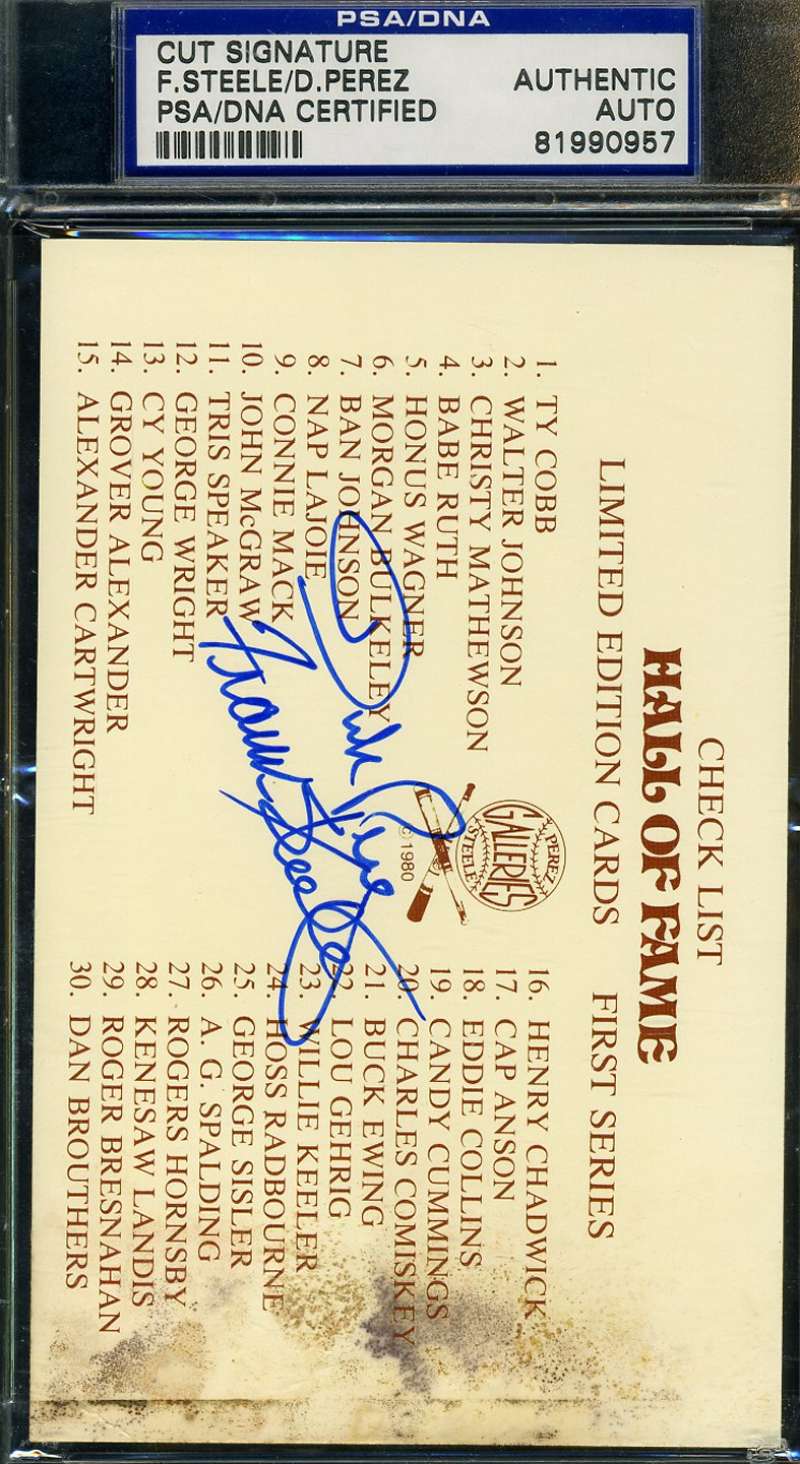 PSA/DNA
CUT SIGNATURE
F.STEELE/D.PEREZ
PSA/DNA CERTIFIED
AUTHENTIC
AUTO
81990957
CHECK LIST
HALL OF FAME
LIMITED EDITION CARDS FIRST SERIES
1. TY COBB
2. WALTER JOHNSON
3. CHRISTY MATHEWSON
4. BABE RUTH
5. HONUS WAGNER
6. MORGAN BULKELEY
7. BAN JOHNSON
8. NAP LAJOIE
9. CONNIE MACK
10. JOHN McGRAW
11. TRIS SPEAKER
12. GEORGE WRIGHT
13. CY YOUNG
14. GROVER ALEXANDER
15. ALEXANDER CARTWRIGHT
PEREZ
STEELE
GALLERIES
© 1980
16. HENRY CHADWICK
17. CAP ANSON
18. EDDIE COLLINS
19. CANDY CUMMINGS
20. CHARLES COMISKEY
21. BUCK EWING
22. LOU GEHRIG
23. WILLIE KEELER
24. HOSS RADBOURNE
25. GEORGE SISLER
26. A. G. SPALDING
27. ROGERS HORNSBY
28. KENESAW LANDIS
29. ROGER BRESNAHAN
30. DAN BROUTHERS
Dick Perez
Frank Steele